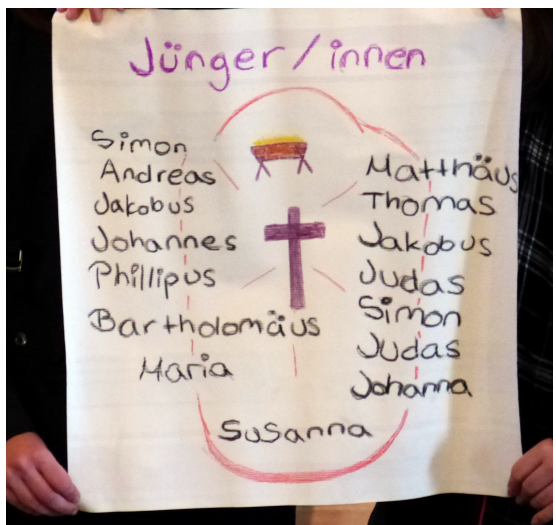 Jünger/innen
Simon
Andreas
Jakobus
Johannes
Phillipus
Bartholomäus
Maria
Matthäus
Thomas
Jakobus
Judas
Simon
Judas
Johanna
Susanna